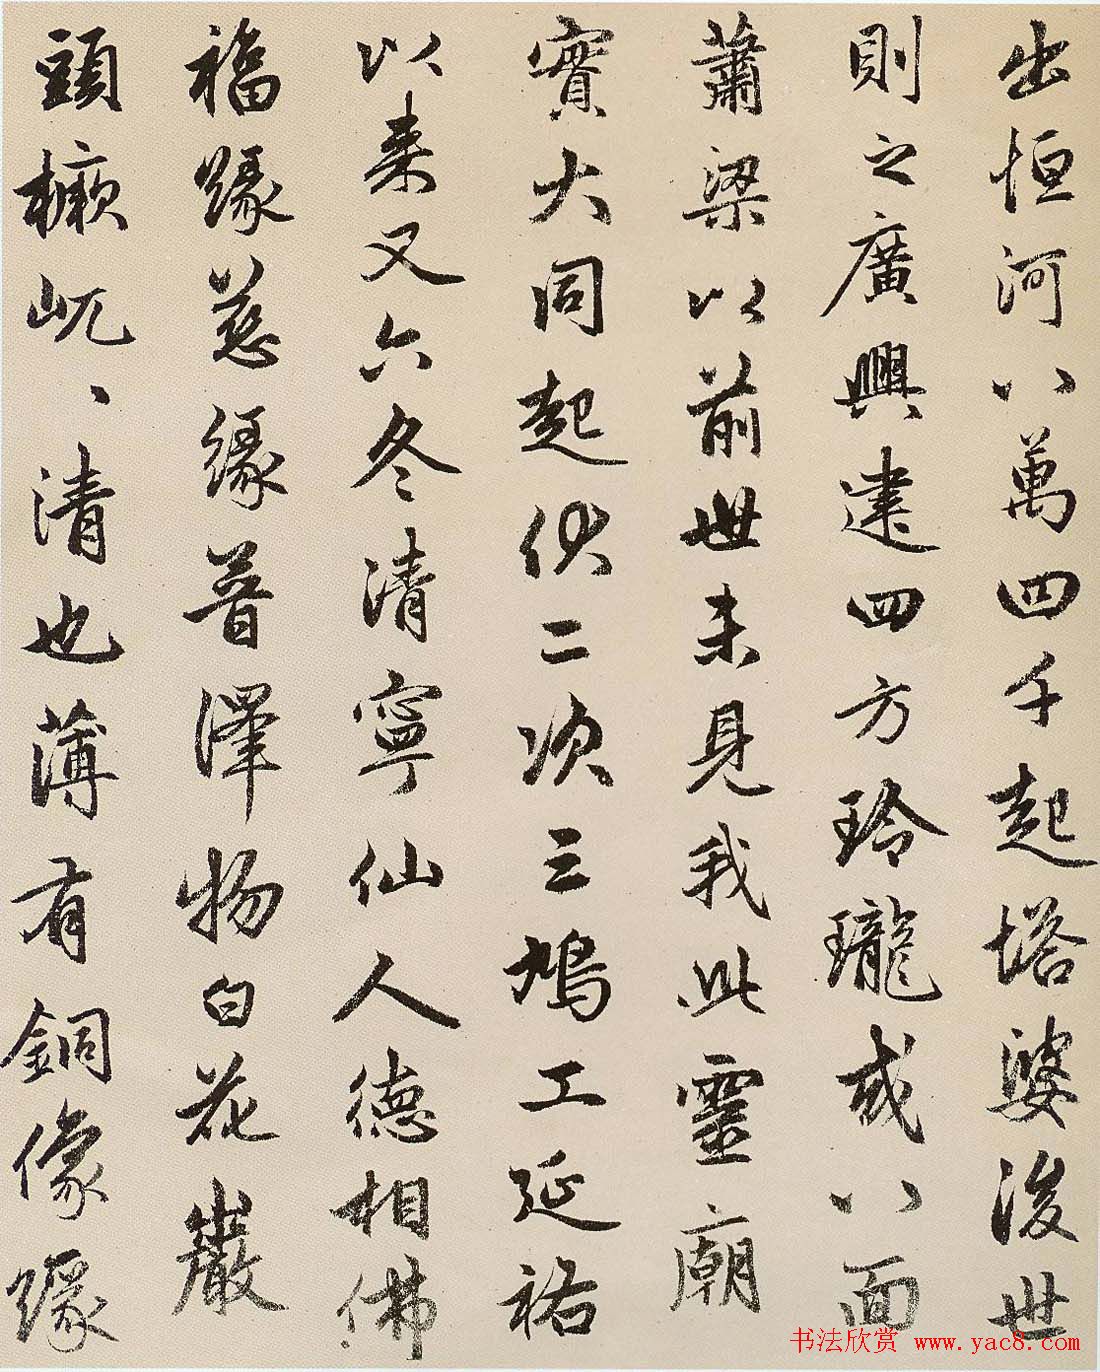 出恒河八萬四千起塔婆後世
則之廣興建四方玲瓏或八面
蕭梁以前世未見我此靈廟
實大同起伏二次三鳩工延祐
以来又六冬清寧仙人德相佛
福緣慈緣普澤物白花巖
頭橛屼、清也薄有銅像緣
书法欣赏 www.yac8.com